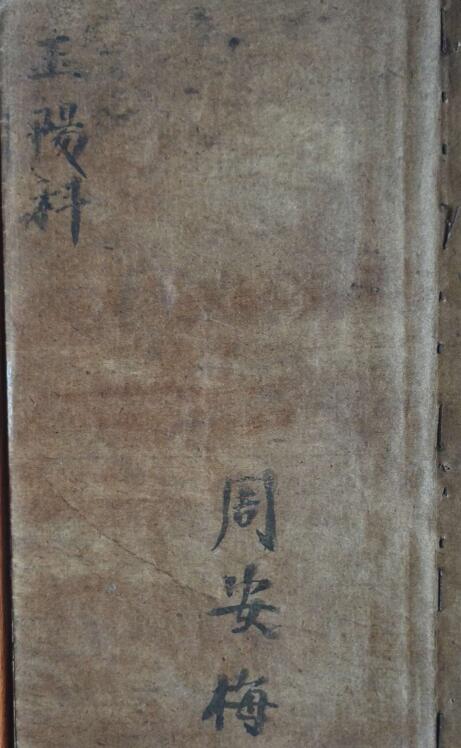 正陽科
周安梅